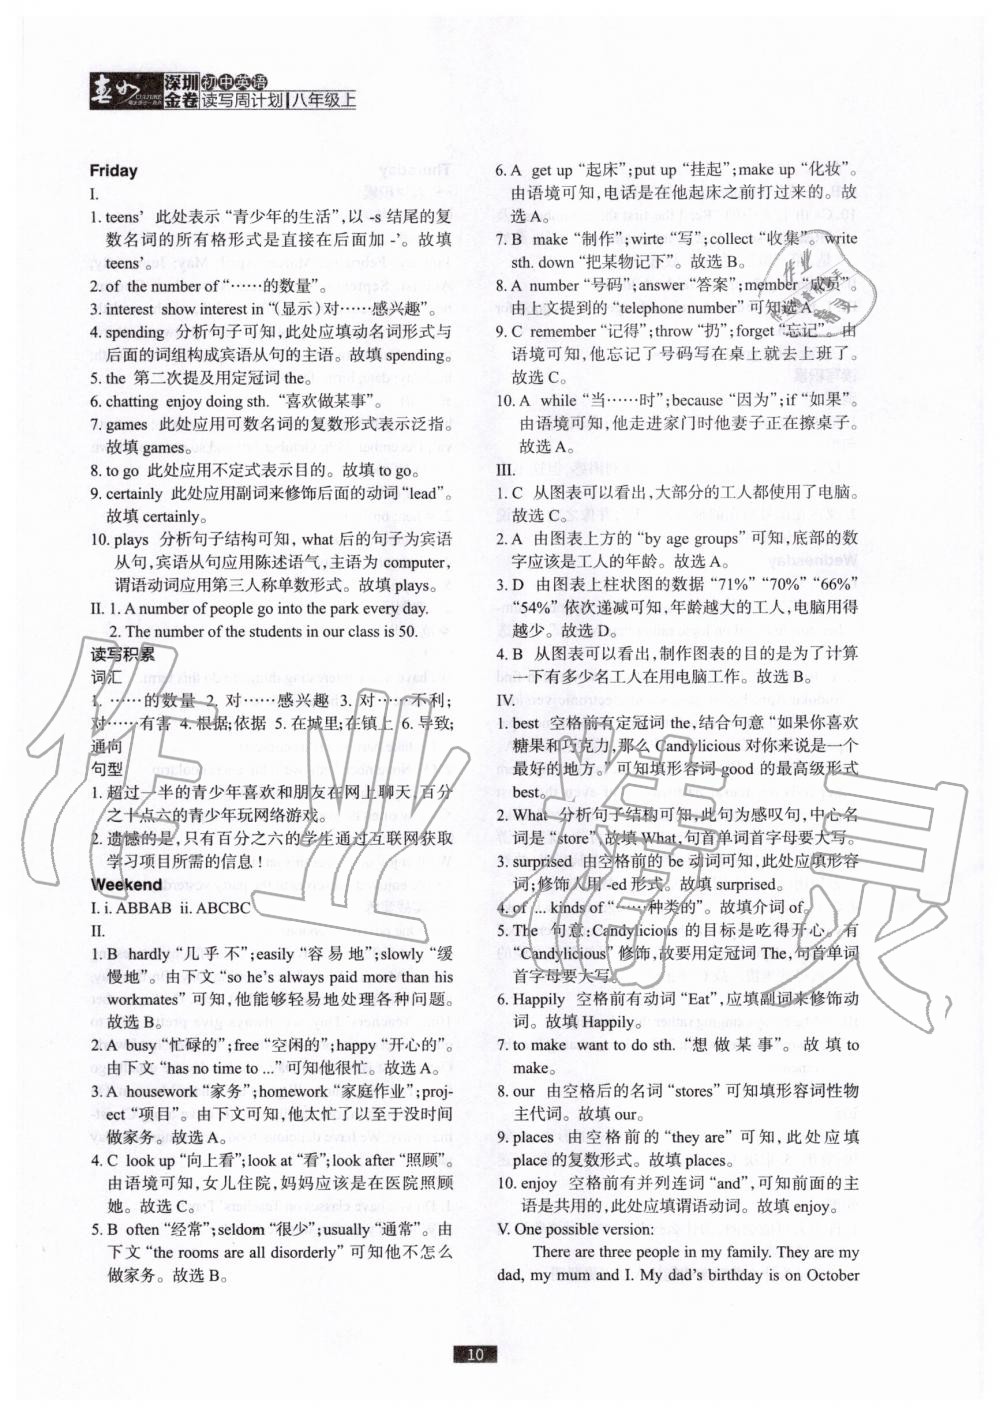 春如
CULTURE
深圳
金卷
初中英语
读写周计划 八年级上
Friday
I.
1. teens' 此处表示“青少年的生活”,以 -s 结尾的复
数名词的所有格形式是直接在后面加 -'。故填
teens'。
2. of the number of “……的数量”。
3. interest show interest in “(显示)对……感兴趣”。
4. spending 分析句子可知,此处应填动名词形式与
后面的词组构成宾语从句的主语。故填 spending。
5. the 第二次提及用定冠词 the。
6. chatting enjoy doing sth. “喜欢做某事”。
7. games 此处应用可数名词的复数形式表示泛指。
故填 games。
8. to go 此处应用不定式表示目的。故填 to go。
9. certainly 此处应用副词来修饰后面的动词 “lead”。
故填 certainly。
10. plays 分析句子结构可知, what 后的句子为宾语
从句,宾语从句应用陈述语气,主语为 computer,
谓语动词应用第三人称单数形式。故填 plays。
II. 1. A number of people go into the park every day.
2. The number of the students in our class is 50.
读写积累
词汇
1. ……的数量 2. 对……感兴趣 3. 对……不利;
对……有害 4. 根据;依据 5. 在城里;在镇上 6. 导致;
通向
句型
1. 超过一半的青少年喜欢和朋友在网上聊天,百分
之十点六的青少年玩网络游戏。
2. 遗憾的是,只有百分之六的学生通过互联网获取
学习项目所需的信息!
Weekend
I. i. ABBAB ii. ABCBC
II.
1. B hardly “几乎不”;easily “容易地”;slowly “缓
慢地”。由下文 “so he's always paid more than his
workmates” 可知,他能够轻易地处理各种问题。
故选 B。
2. A busy “忙碌的”;free “空闲的”;happy “开心的”。
由下文 “has no time to ...” 可知他很忙。故选 A。
3. A housework “家务”;homework “家庭作业”;proj-
ect “项目”。由下文可知,他太忙了以至于没时间
做家务。故选 A。
4. C look up “向上看”;look at “看”;look after “照顾”。
由语境可知,女儿住院,妈妈应该是在医院照顾
她。故选 C。
5. B often “经常”;seldom “很少”;usually “通常”。由
下文 “the rooms are all disorderly” 可知他不怎么
做家务。故选 B。
6. A get up “起床”;put up “挂起”;make up “化妆”。
由语境可知,电话是在他起床之前打过来的。故
选 A。
7. B make “制作”;wirte “写”;collect “收集”。write
sth. down “把某物记下”。故选 B。
8. A number “号码”;answer “答案”;member “成员”。
由上文提到的 “telephone number” 可知选 A。
9. C remember “记得”;throw “扔”;forget “忘记”。由
语境可知,他忘记了号码写在桌上就去上班了。
故选 C。
10. A while “当……时”;because “因为”;if “如果”。
由语境可知,他走进家门时他妻子正在擦桌子。
故选 A。
III.
1. C 从图表可以看出,大部分的工人都使用了电脑。
故选 C。
2. A 由图表上方的 “by age groups” 可知,底部的数
字应该是工人的年龄。故选 A。
3. D 由图表上柱状图的数据 “71%” “70%” “66%”
“54%” 依次递减可知,年龄越大的工人,电脑用得
越少。故选 D。
4. B 从图表可以看出,制作图表的目的是为了计算
一下有多少名工人在用电脑工作。故选 B。
IV.
1. best 空格前有定冠词 the,结合句意 “如果你喜欢
糖果和巧克力,那么 Candylicious 对你来说是一个
最好的地方。” 可知填形容词 good 的最高级形式
best。
2. What 分析句子结构可知,此句为感叹句,中心名
词是 “store”,故填 What,句首单词首字母要大写。
3. surprised 由空格前的 be 动词可知,此处应填形容
词;修饰人用 -ed 形式。故填 surprised。
4. of ... kinds of “……种类的”。故填介词 of。
5. The 句意:Candylicious 的目标是吃得开心。有
“Candylicious” 修饰,故要用定冠词 The,句首单词
首字母要大写。
6. Happily 空格前有动词 “Eat”,应填副词来修饰动
词。故填 Happily。
7. to make want to do sth. “想做某事”。故填 to
make。
8. our 由空格后的名词 “stores” 可知填形容词性物
主代词。故填 our。
9. places 由空格前的 “they are” 可知,此处应填
place 的复数形式。故填 places。
10. enjoy 空格前有并列连词 “and”,可知前面的主
语是共用的,此处应填谓语动词。故填 enjoy。
V. One possible version:
There are three people in my family. They are my
dad, my mum and I. My dad's birthday is on October
10
作业精灵